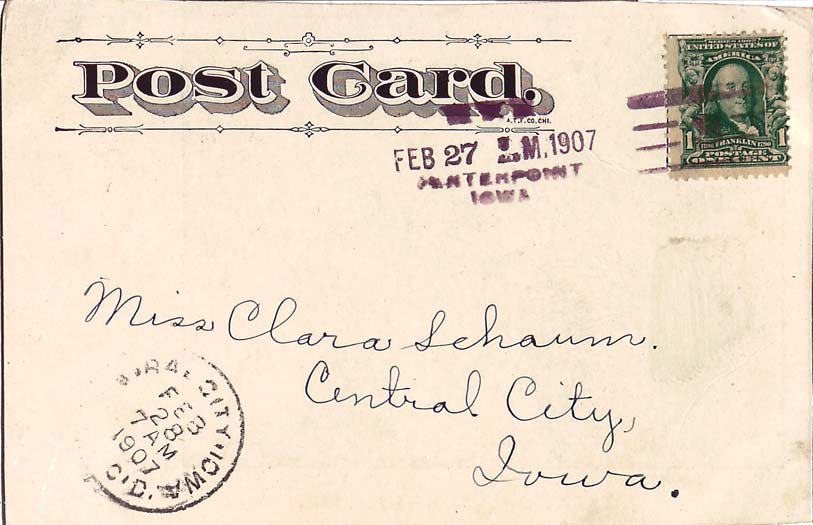 Post Card.
A.T.F.CO.CHI.
SERIES 1902
UNITED STATES OF
AMERICA
1 FRANKLIN 1
POSTAGE
ONE CENT
FEB 27 M, 1907
IOWA
Miss Clara Schaum.
Central City,
Iowa.
CITY IOWA
FEB
28
7 AM
1907